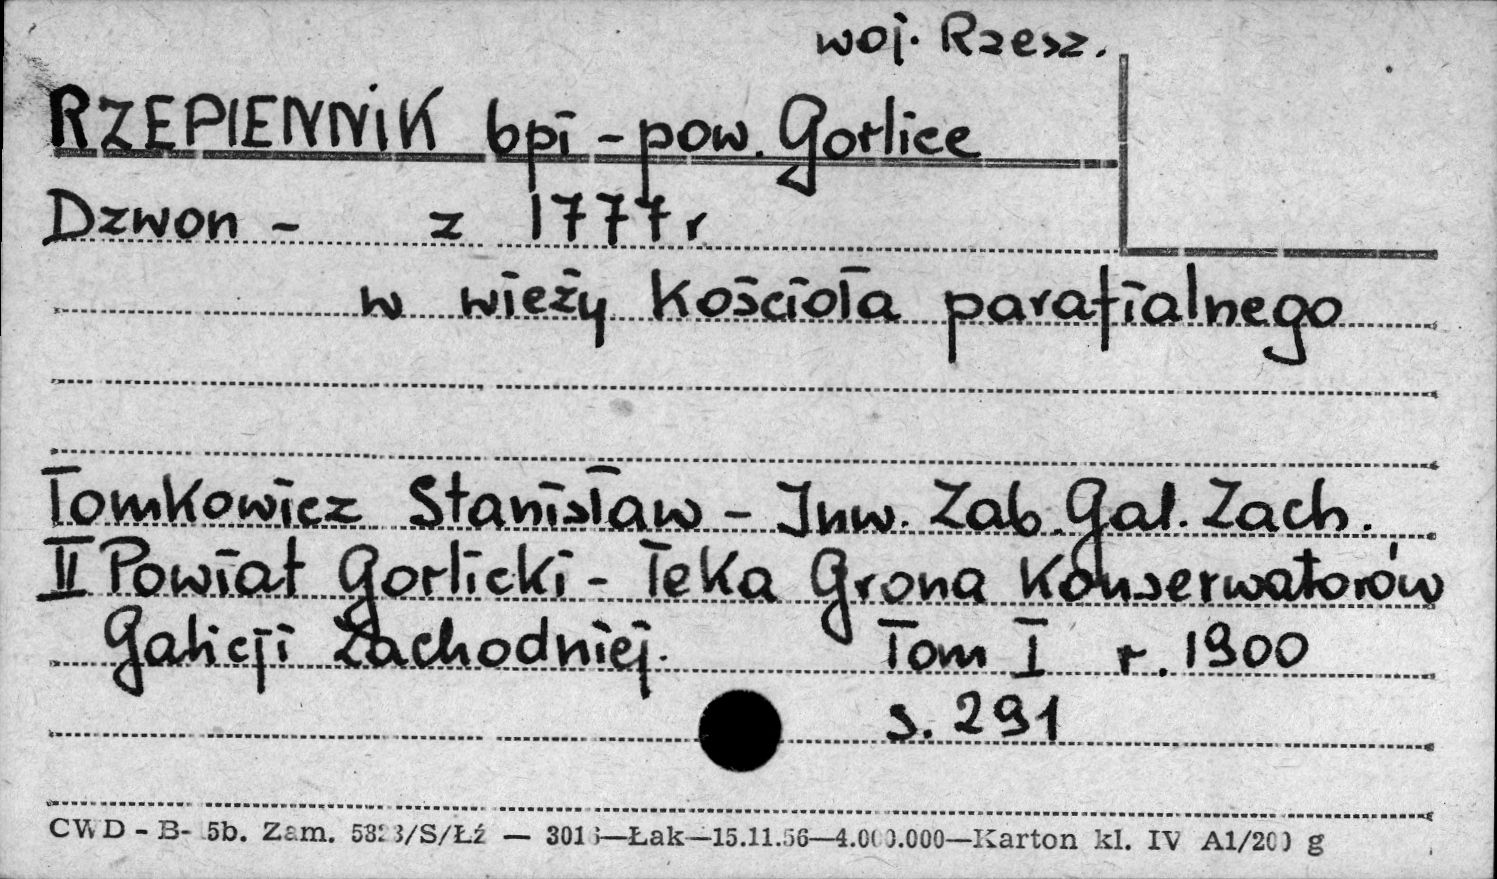 woj. Rzesz.
RZEPIENNIK bpi - pow. Gorlice
Dzwon - z 1777 r
w wieży Kościoła parafialnego
Tomkowicz Stanisław - Inw. Zab. Gal. Zach.
II Powiat Gorlicki - Teka Grona Konserwatorów
Galicji Zachodniej. Tom I r. 1900
s. 291
CWD - B- 5b. Zam. 5823/S/Łź — 301 —Łak—15.11.56—4.000.000—Karton kl. IV A1/200 g